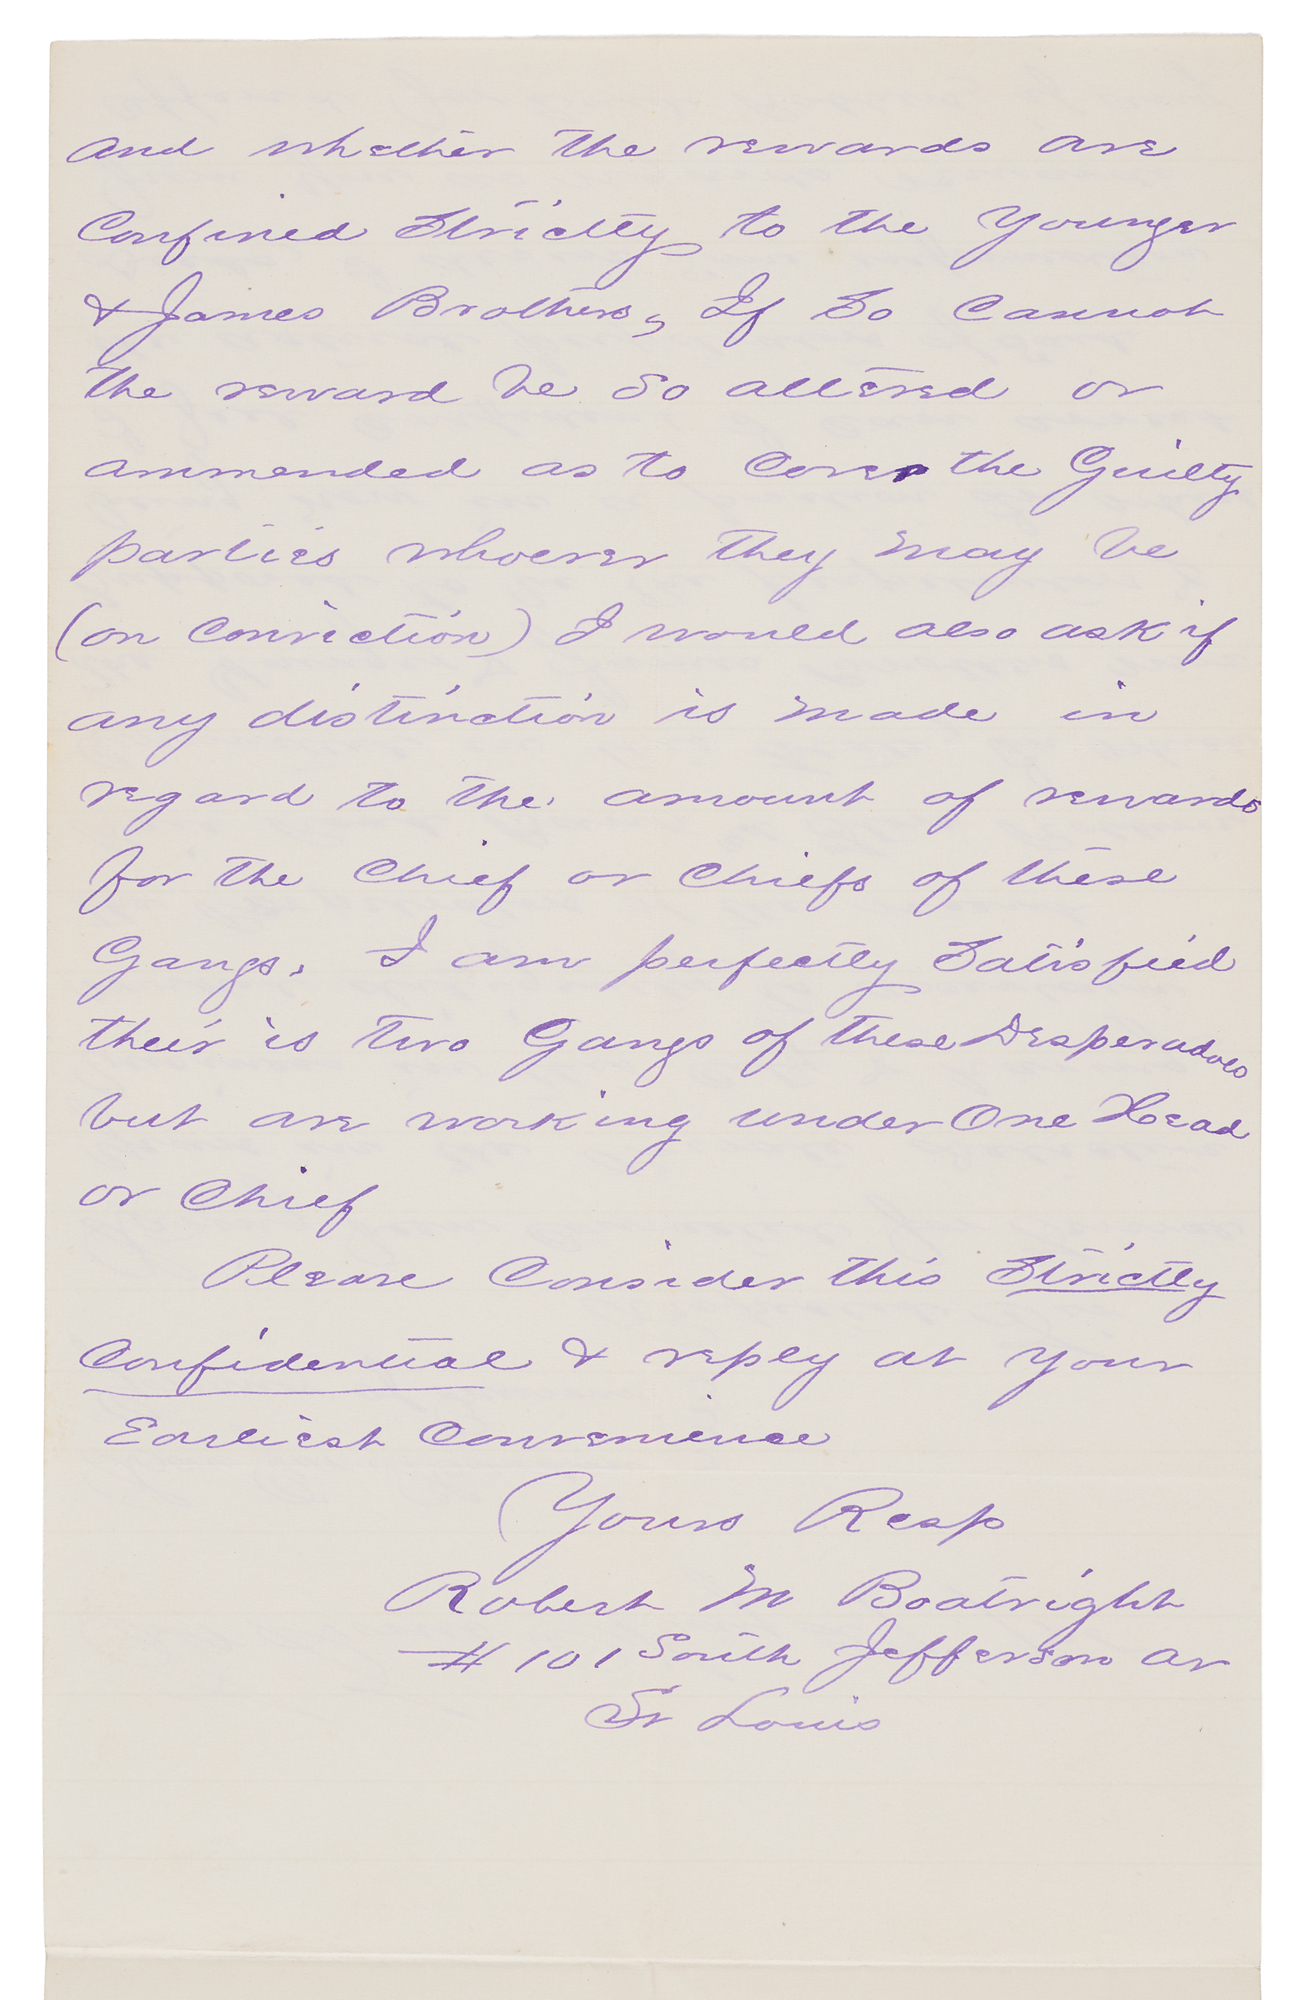 and whether the rewards are
Confined Strictly to the Younger
& James Brothers, If So Cannot
the reward be So altered or
ammended as to Cover the Guilty
parties whoever they may be
(on Conviction) I would also ask if
any distinction is made in
regard to the amount of rewards
for the Chief or Chiefs of these
Gangs. I am perfectly Satisfied
their is two Gangs of these Desperadoes
but are working under One Head
or Chief
Please Consider this Strictly
Confidential & reply at your
Earliest Convenience
Yours Resp
Robert M Boatright
# 101 South Jefferson av
St Louis